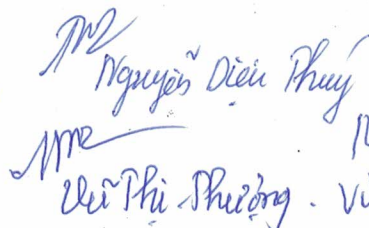 Nguyễn Diệu Thuý
Vũ Thị Phượng.